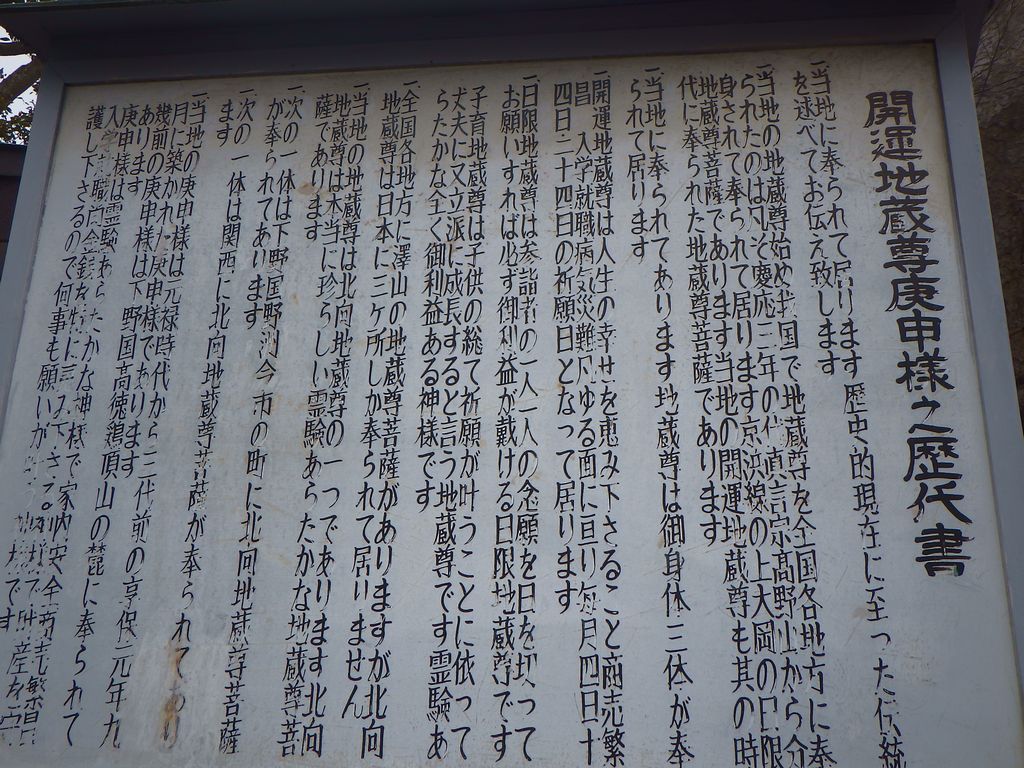 開運地蔵尊庚申様之歴代書
一、当地に奉られて居ります歴史的現在に至った伝統
を述べてお伝え致します
一、当地の地蔵尊始め我国で地蔵尊を全国各地方に奉
られたのは凡そ慶応三年の代真言宗高野山から分
身されて奉られて居ります京浜線の上大岡の日限
地蔵尊菩薩であります当地の開運地蔵尊も其の時
代に奉られた地蔵尊菩薩であります
一、当地に奉られてあります地蔵尊は御身体三体が奉
られて居ります
一、開運地蔵尊は人生の幸せを恵み下さること商売繁
昌 入学就職病気災難凡ゆる面に亘り毎月四日十
四日二十四日の祈願日となって居ります
一、日限地蔵尊は参詣者の一人一人の念願を日を切って
お願いすれば必ず御利益が戴ける日限地蔵尊です
子育地蔵尊は子供の総て祈願が叶うことに依って
丈夫に又立派に成長すると言う地蔵尊です霊験あ
らたかな全く御利益ある神様です
一、全国各地方に澤山の地蔵尊菩薩がありますが北向
地蔵尊は日本に三ケ所しか奉られて居りません
一、当地の地蔵尊は北向地蔵尊の一つであります北向
地蔵尊は本当に珍らしい霊験あらたかな地蔵尊菩
薩であります
一、次の一体は下野国野州今市の町に北向地蔵尊菩薩
が奉られてあります
一、次の一体は関西に北向地蔵尊菩薩が奉られてあり
ます
一、当地の庚申様は元禄時代から三代前の享保元年九
月に築かれた庚申様であります
幾前の庚申様は下野国高徳鶏頂山の麓に奉られて
あります
庚申様は霊験あらたかな神様で家内安全商売繁昌
入学就職 安産を守
護し下さるので何事も願いが です